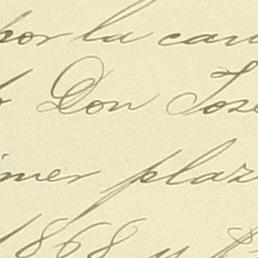 por la can
Don José
imer plaz
1868 y